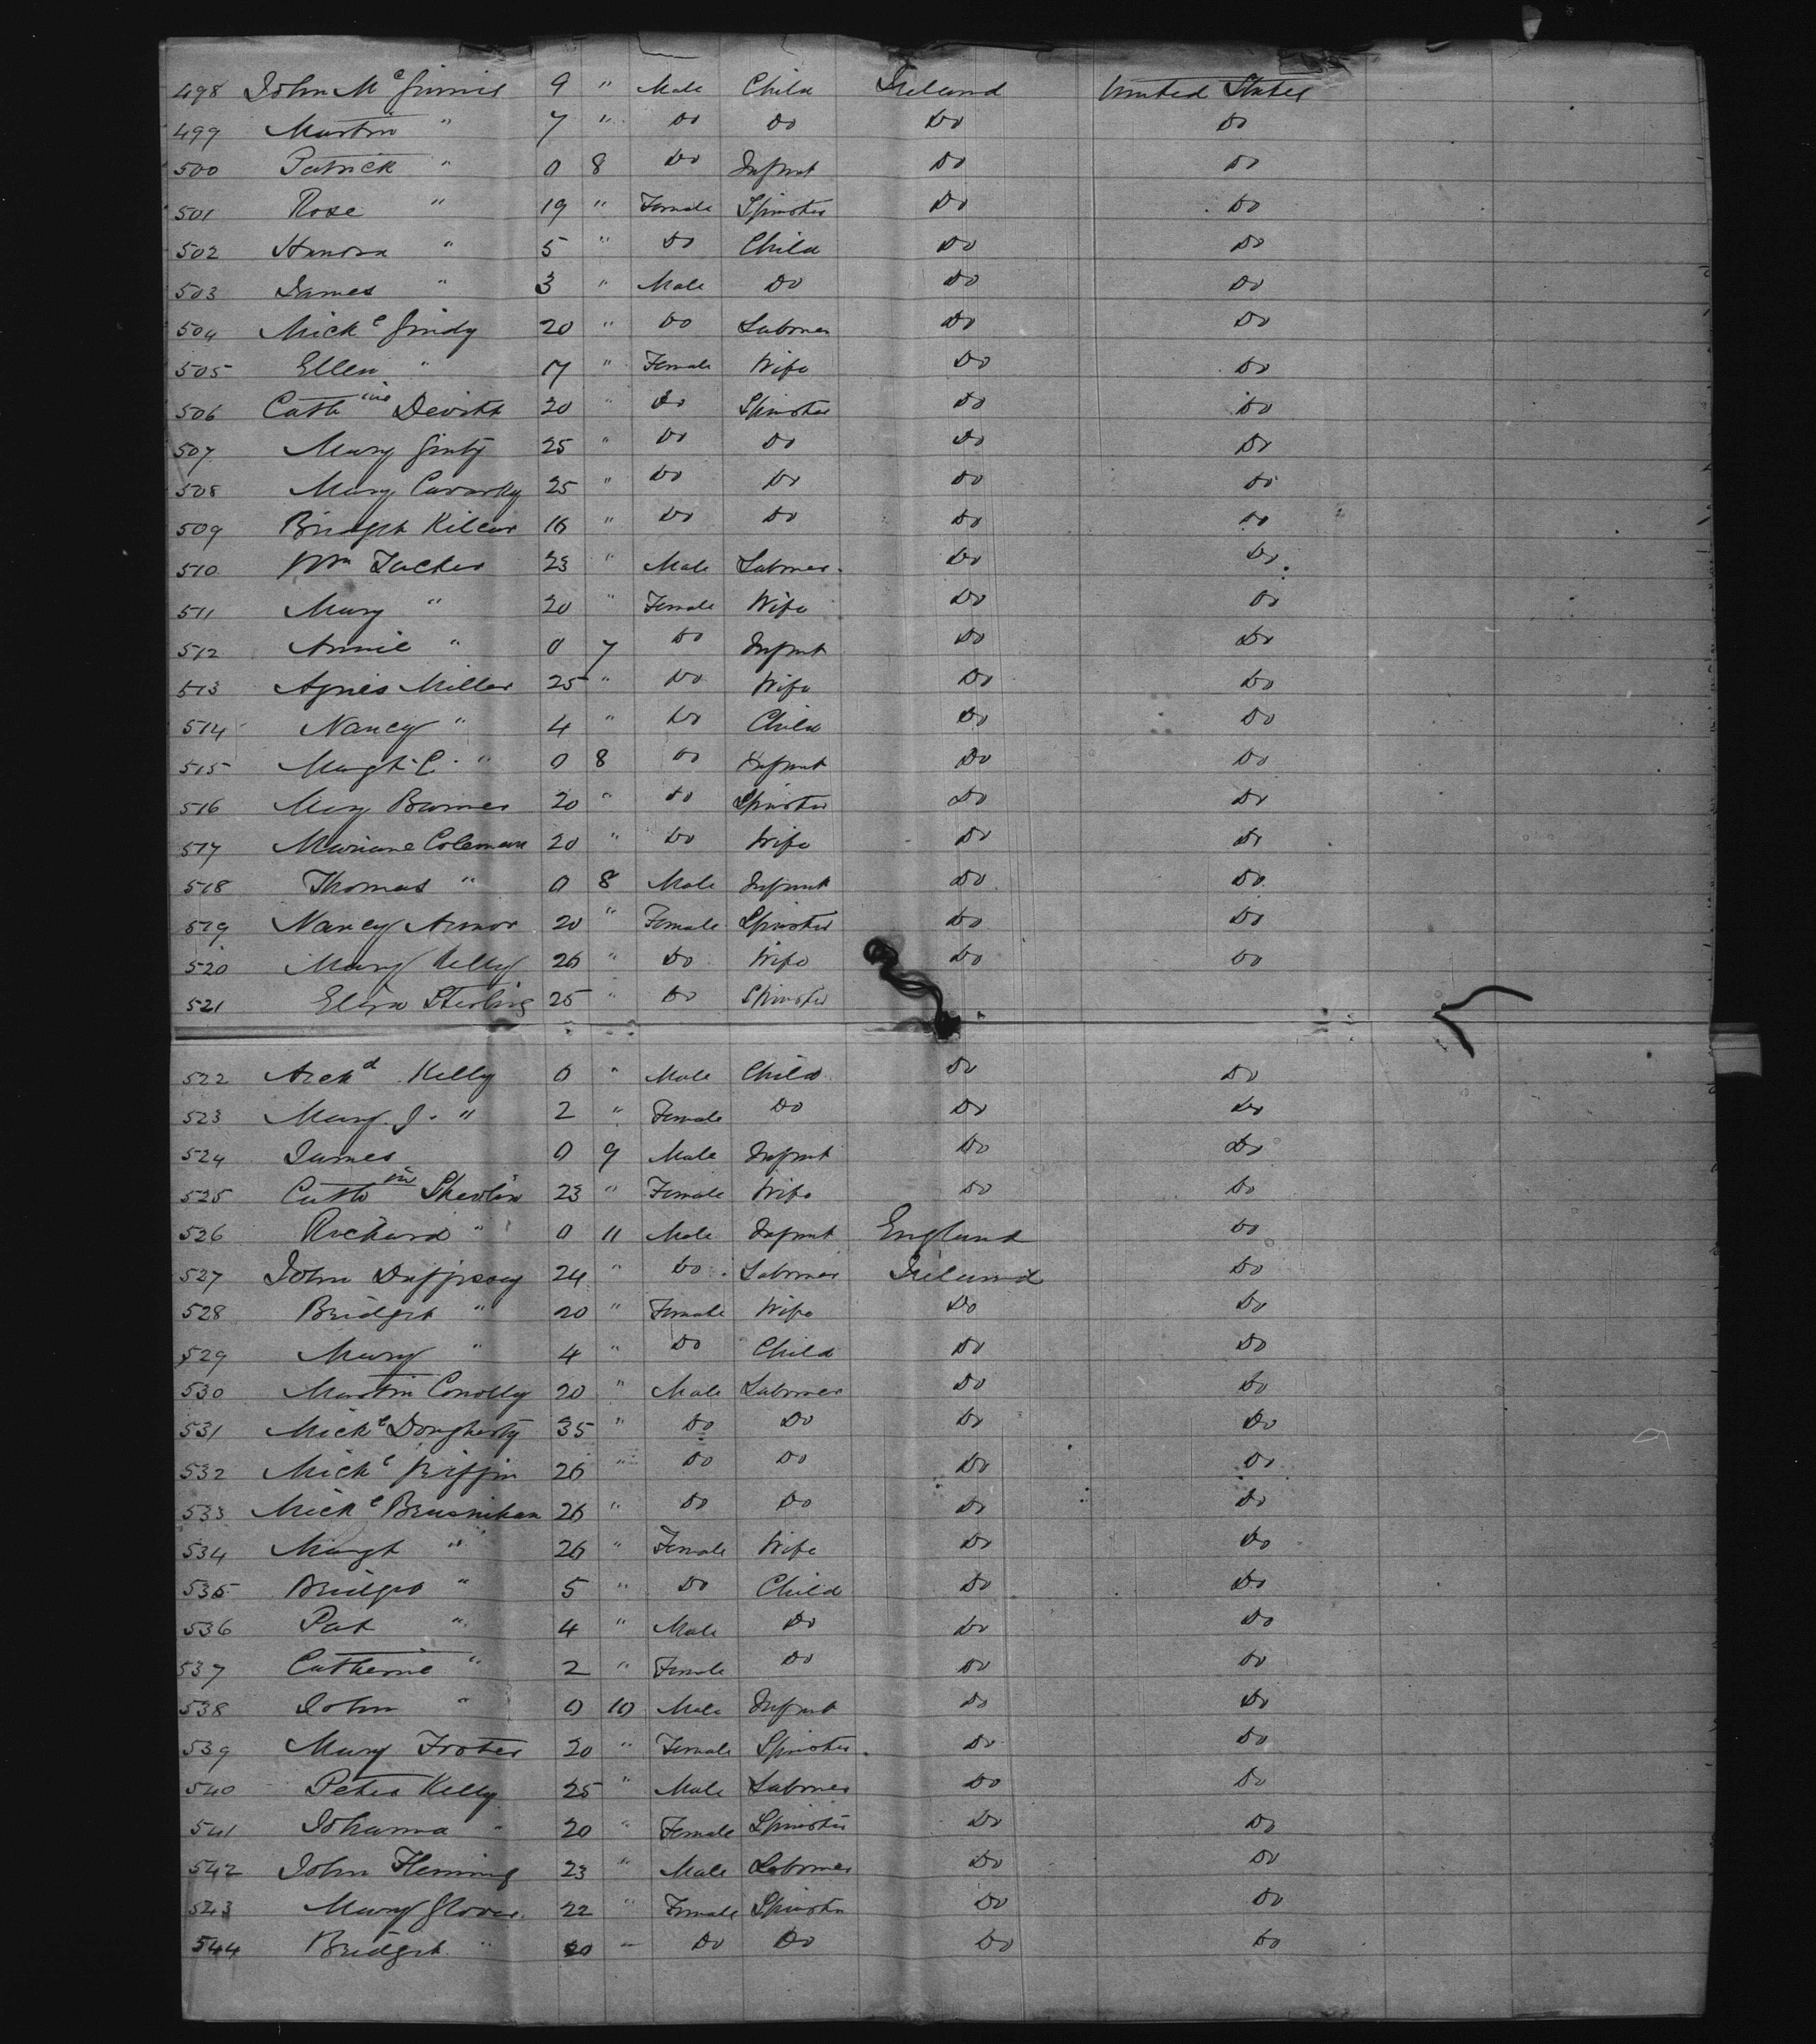 498 John McGinnis 9 " Male Child Ireland United States
499 Martin " 7 " Do Do Do Do
500 Patrick " 0 8 Do Infant Do Do
501 Rose " 19 " Female Spinster Do Do
502 Honora " 5 " Do Child Do Do
503 James " 3 " Male Do Do Do
504 Michl Gindy 20 " Do Labourer Do Do
505 Ellen " 17 " Female Wife Do Do
506 Cathine Devitt 20 " Do Spinster Do Do
507 Mary Ginty 25 " Do Do Do Do
508 Mary 25 " Do Do Do Do
509 Bridget Kilcur 16 " Do Do Do Do
510 Wm Tucker 23 " Male Labourer Do Do
511 Mary " 20 " Female Wife Do Do
512 Annie " 0 7 Do Infant Do Do
513 Agnes Miller 25 " Do Wife Do Do
514 Nancy " 4 " Do Child Do Do
515 Margt C. " 0 8 Do Infant Do Do
516 Mary Barnes 20 " Do Spinster Do Do
517 Mariane Coleman 20 " Do Wife Do Do
518 Thomas " 0 8 Male Infant Do Do
519 Nancy Armor 20 " Female Spinster Do Do
520 Mary Kelly 26 " Do Wife Do Do
521 Eliza Sterling 25 " Do Spinster
522 Archd Kelly 0 " Male Child Do Do
523 Mary J. " 2 " Female Do Do Do
524 James 0 9 Male Infant Do Do
525 Cathine Shevlin 23 " Female Wife Do Do
526 Richard " 0 11 Male Infant England Do
527 John 24 " Do Labourer Ireland Do
528 Bridget " 20 " Female Wife Do Do
529 Mary " 4 " Do Child Do Do
530 Martin Conolly 20 " Male Labourer Do Do
531 Michl Dougherty 35 " Do Do Do Do
532 Michl Griffin 26 " Do Do Do Do
533 Michl Brusnihan 26 " Do Do Do Do
534 Margt " 26 " Female Wife Do Do
535 Bridget " 5 " Do Child Do Do
536 Pat " 4 " Male Do Do Do
537 Catherine " 2 " Female Do Do Do
538 John " 0 10 Male Infant Do Do
539 Mary Froter 20 " Female Spinster Do Do
540 Peter Kelly 25 " Male Labourer Do Do
541 Johanna " 20 " Female Spinster Do Do
542 John Fleming 23 " Male Labourer Do Do
543 Mary Glover 22 " Female Spinster Do Do
544 Bridget " 20 " Do Do Do Do